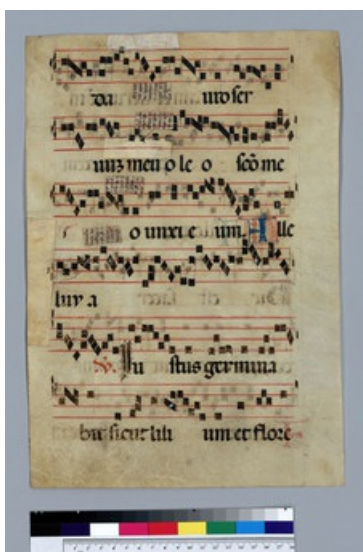 da uid ser
uuʒ meū o le o scō me
o unxi e um. Alle
luy a
℣. Iu stus germina
bit sicut lili um et flore